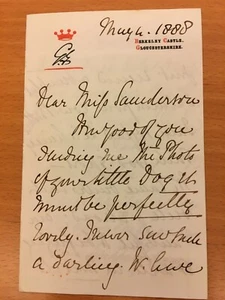 May 4. 1888
BERKELEY CASTLE,
GLOUCESTERSHIRE.
Dear Miss Saunderson
How good of you
sending me the Photo
of your little Dog it
must be perfectly
lovely. I never saw such
a darling. We have